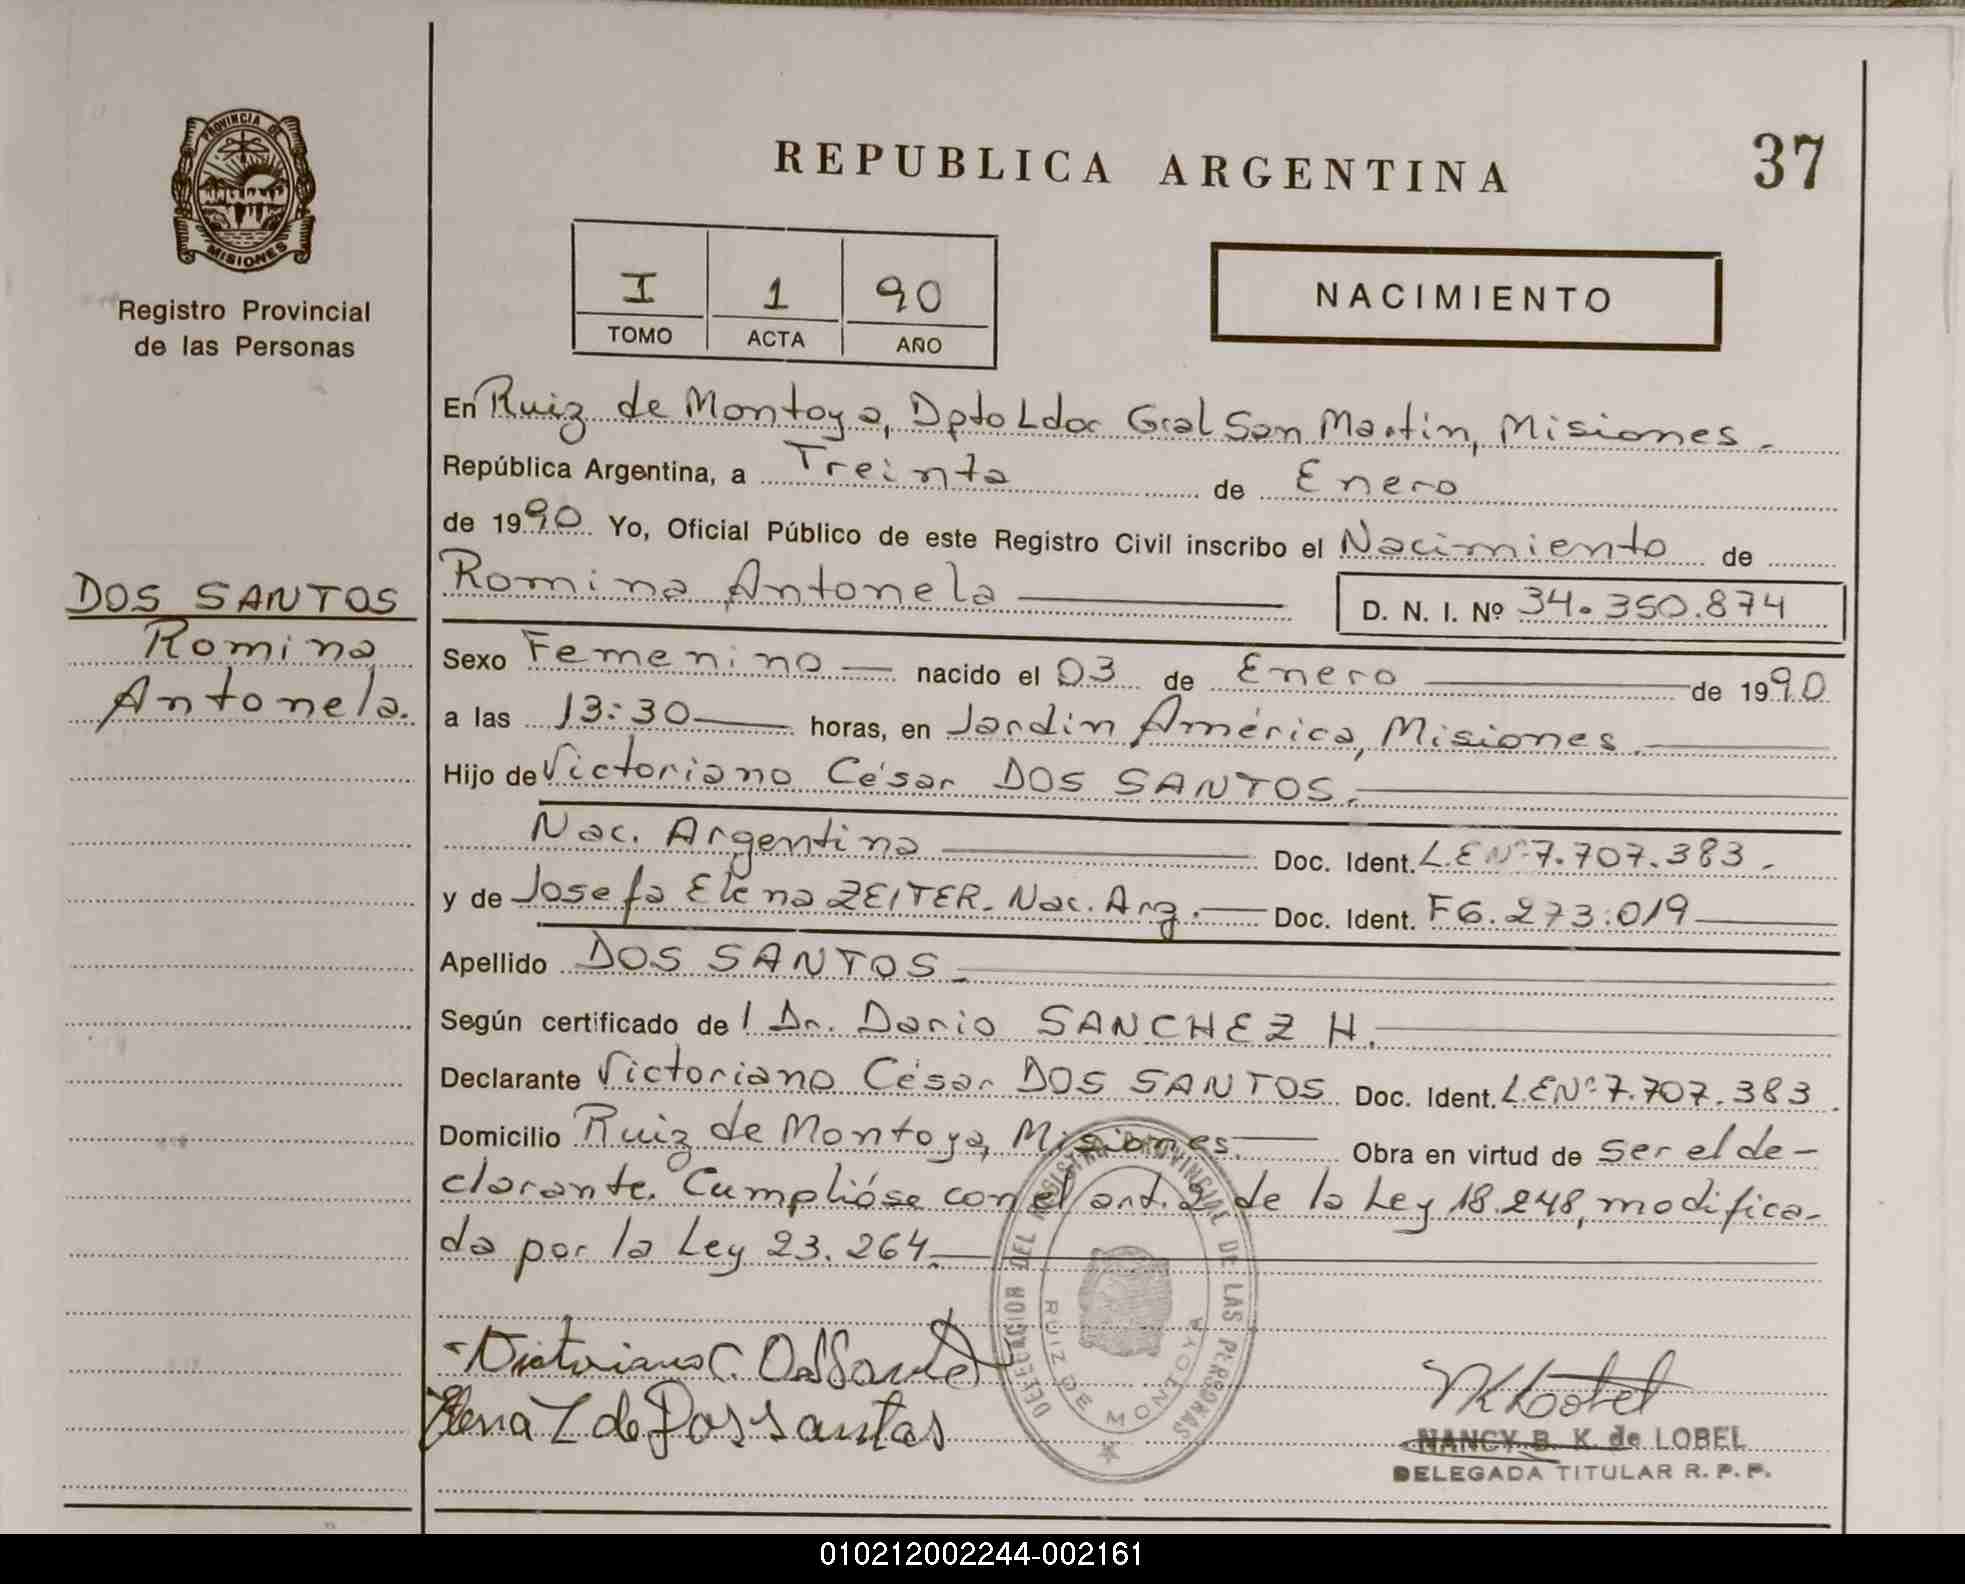 PROVINCIA DE
MISIONES
Registro Provincial
de las Personas
DOS SANTOS
Romina
Antonela.
REPUBLICA ARGENTINA
37
I 1 90
TOMO ACTA AÑO
NACIMIENTO
En Ruiz de Montoya, Dpto Ldor Gral San Martin, Misiones.-
República Argentina, a Treinta de Enero
de 1990 Yo, Oficial Público de este Registro Civil inscribo el Nacimiento de
Romina Antonela
D. N. I. Nº 34.350.874
Sexo Femenino nacido el 03 de Enero de 1990
a las 13:30 horas, en Jardin América, Misiones.
Hijo de Victoriano César DOS SANTOS.
Nac. Argentina Doc. Ident. L.E Nº 7.707.383.-
y de Josefa Elena ZEITER. Nac. Arg. Doc. Ident. F6.273.019
Apellido DOS SANTOS.
Según certificado de l Dr. Dario SANCHEZ H.
Declarante Victoriano César DOS SANTOS Doc. Ident. L.E Nº 7.707.383.
Domicilio Ruiz de Montoya, Misiones. Obra en virtud de ser el de-
clarante. Cumplióse con el art. 2 de la Ley 18.248, modifica-
da por la Ley 23.264.
DELEGACION DEL REGISTRO PROVINCIAL DE LAS PERSONAS
RUIZ DE MONTOYA
Victoriano C. Dos Santos
Elena Z de Dos santos
NANCY B. K. de LOBEL
DELEGADA TITULAR R. P. P.
010212002244-002161